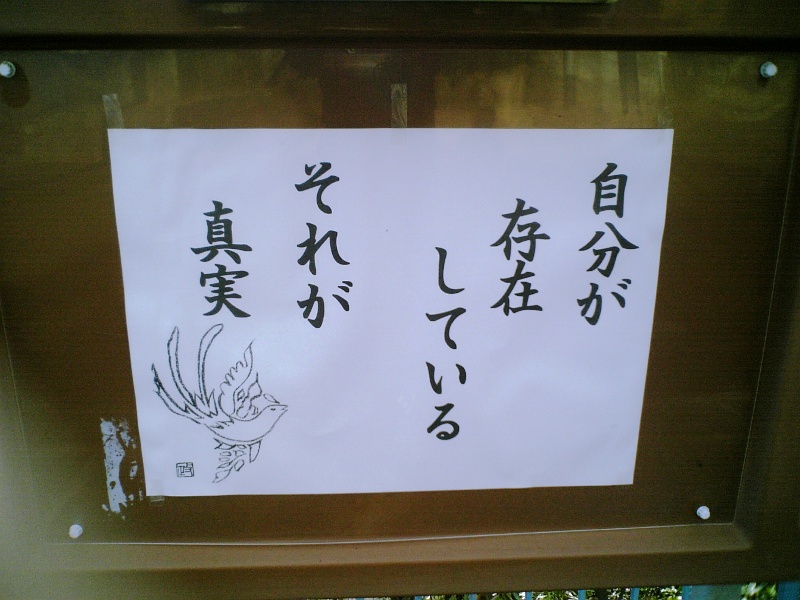 自分が
存在
している
それが
真実